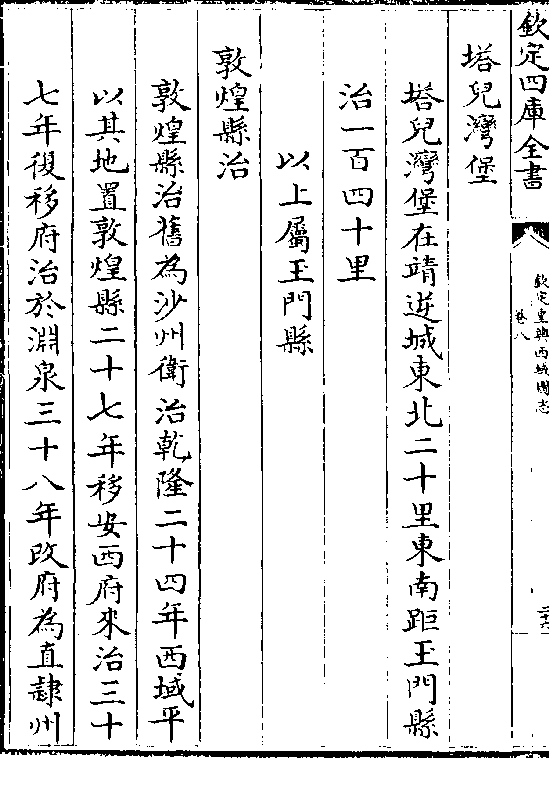 欽定四庫全書
欽定皇輿西域圖志
卷八
塔兒灣堡
塔兒灣堡在靖逆城東北二十里東南距玉門縣
治一百四十里
以上屬玉門縣
敦煌縣治
敦煌縣治舊為沙州衛治乾隆二十四年西域平
以其地置敦煌縣二十七年移安西府來治三十
七年復移府治於淵泉三十八年改府為直隷州